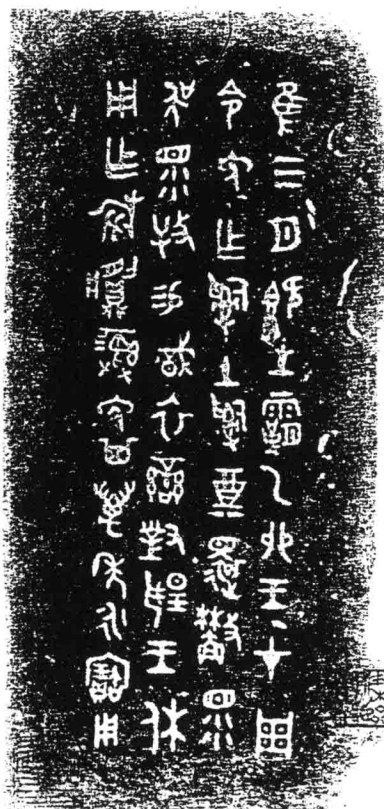 隹三月既生霸乙卯王才周
令免乍𤔲土𤔲奠還歔眔
吳眔牧易戠衣䜌對揚王休
用乍旅䵼彝免其萬年永寶用